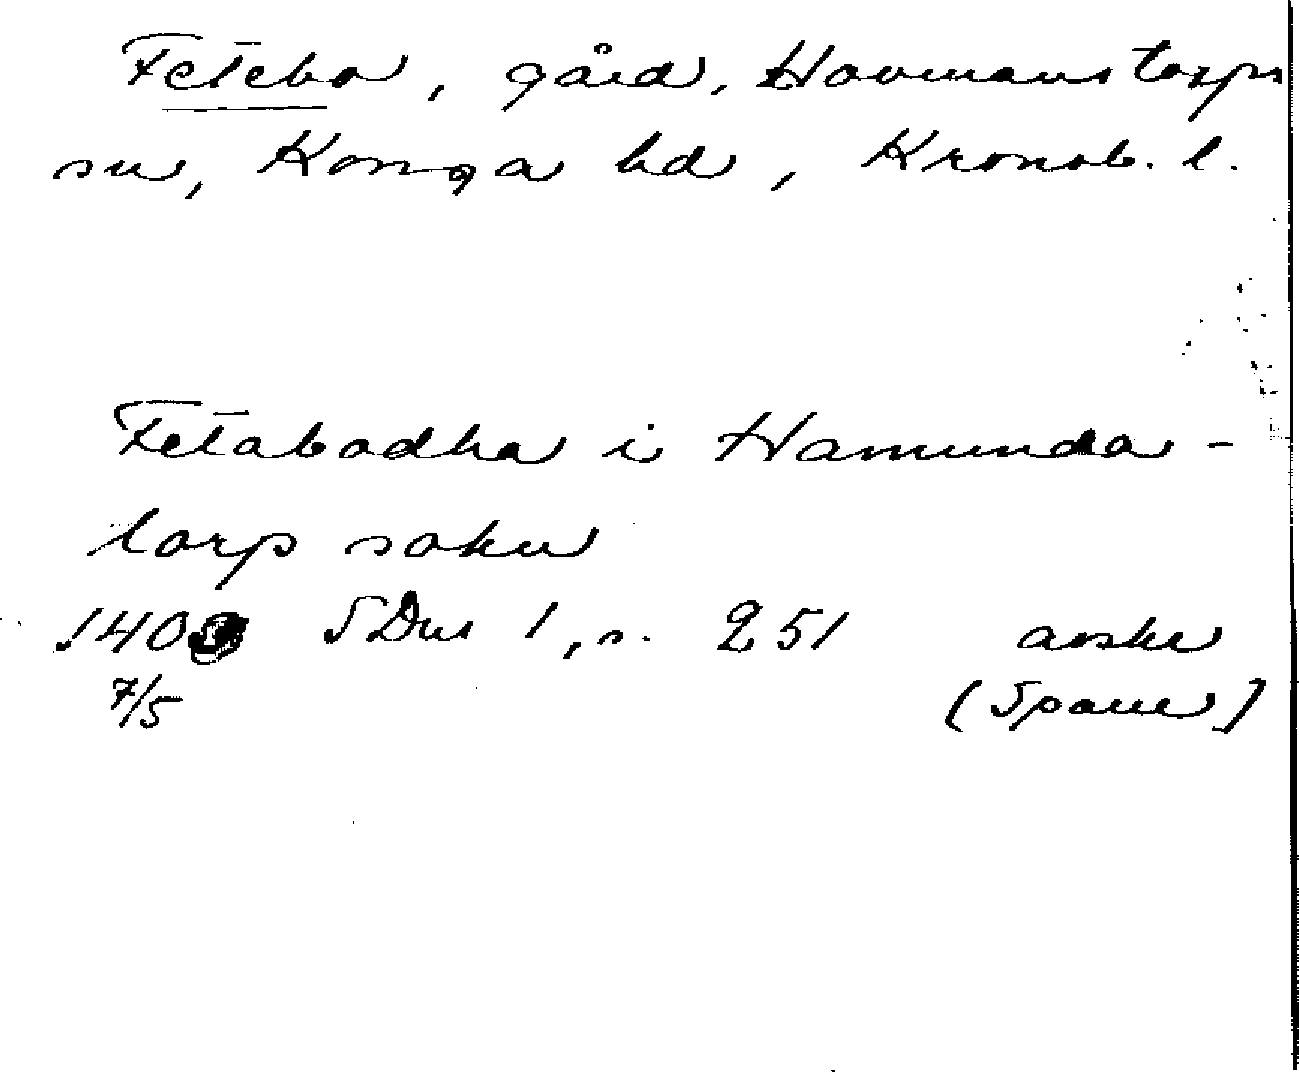 Fetebo, gård, Hovmanstorps
sn, Konga hd, Kronob. l.
Fetabodha i Hamunda-
torp sokn
1403 SDns 1, s. 251 avskr
7/5 (Spane)